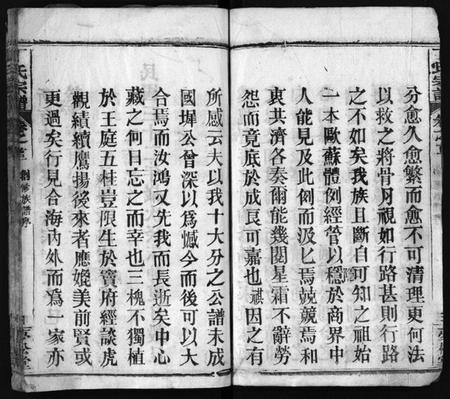 分愈久愈繁而愈不可清理更何法
以救之將骨肉視如行路甚則行路
之不如矣我族且斷自可知之祖始
一本歐蘇體例經管以穩於商界中
人能見及此例而汲匕焉兢兢焉和
衷共濟各奏爾能幾閱星霜不辭勞
怨而竟底於成良可嘉也祺因之有
所感云夫以我十大分之公譜未成
國墀公曾深以爲憾今而後可以大
合焉而汝鴻又先我而長逝矣中心
藏之何日忘之而幸也三槐不獨植
於王庭五桂豈限生於竇府經談虎
觀績續鷹揚後來者應媲美前賢或
更過矣行見合海內外而爲一家亦
氏宗譜
卷之首